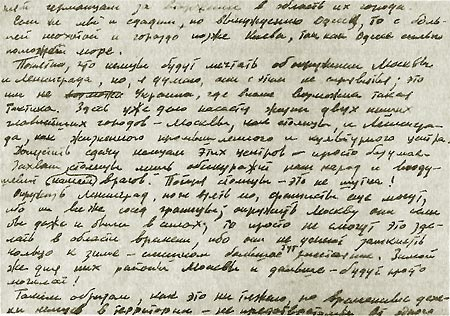 в область их города.
Если не мы и сдадим, но вынуждению Одессу, то с боль-
шей неохотой и гораздо позже Киева, так как Одессе сильно
поможет море.
Понятно, что немцы будут мечтать об окружении Москвы
и Ленинграда, но, я думаю, они с этим не справятся: это
им не Украина, где вполне возможна такая
тактика. Здесь уже дело касается жизни двух наших
главнейших городов – Москвы, как столицы, и Ленингра-
да, как жизненного промышленного и культурного центра.
Допустить сдачу немцам этих центров – просто безумие.
Захват столицы лишь обескуражит наш народ и вооду-
шевит врагов. Потеря столицы – это не шутка!
Окружить Ленинград, но не взять его, фашисты еще могут,
ибо он все же сосед границы; окружить Москву они если
бы даже и были в силах, то просто не смогут это сде-
лать в области времени, ибо они не успеют замкнуть
кольцо к зиме – слишком большое тут расстояние. Зимой
же для них районы Москвы и дальше – будут просто
могилой!
Таким образом, как это ни тяжело, но временные
немцев в территории – не